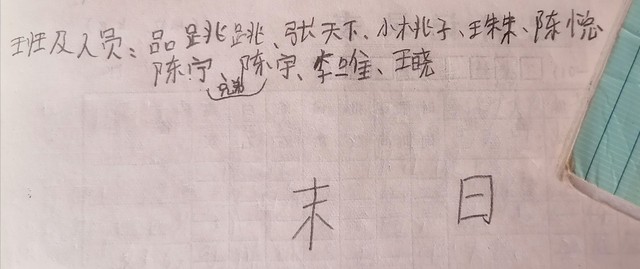 班及人员：品跳跳、张天下、小桃子、王朱朱、陈悦
陈宁、陈宇、李唯、王晓
兄弟
末日